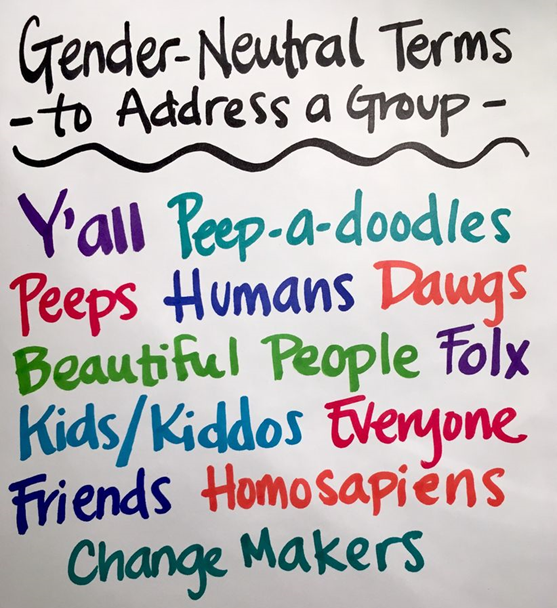 Gender-Neutral Terms
- to Address a Group -
Y'all Peep-a-doodles
Peeps Humans Dawgs
Beautiful People Folx
Kids/Kiddos Everyone
Friends Homosapiens
Change Makers